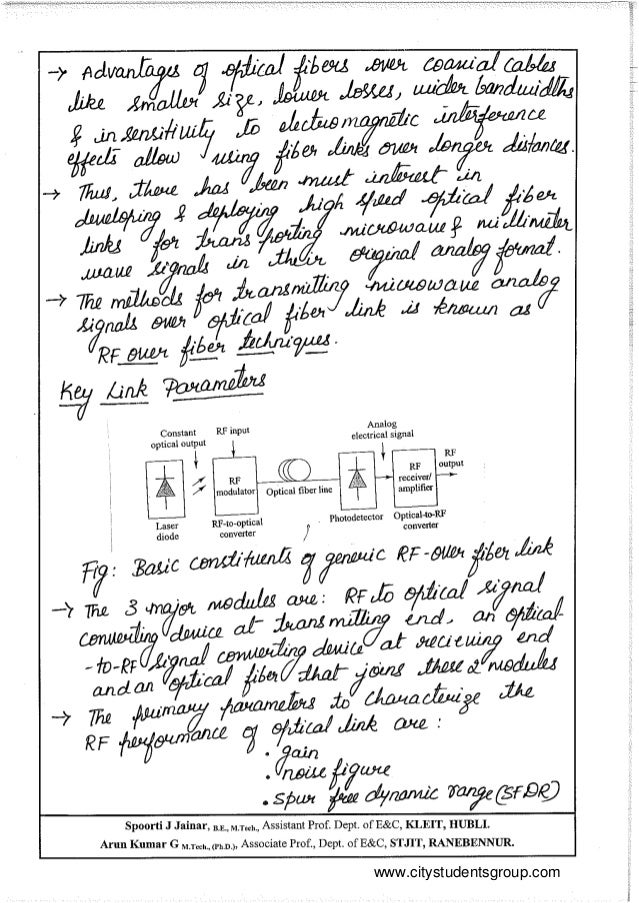 → Advantages of optical fibers over coaxial cables
like smaller size, lower losses, wider bandwidths
& insensitivity to electromagnetic interference
effects allow using fiber links over longer distances.
→ Thus, there has been must interest in
developing & deploying high speed optical fiber
links for transporting microwave & millimeter
wave signals in their original analog format.
→ The methods for transmitting microwave analog
signals over optical fiber link is known as
RF over fiber techniques.
Key Link Parameters
Constant
optical output
RF input
Analog
electrical signal
RF
output
RF
modulator
Optical fiber line
RF
receiver/
amplifier
Laser
diode
RF-to-optical
converter
Photodetector
Optical-to-RF
converter
Fig: Basic constituents of generic RF-over fiber link
→ The 3 major modules are: RF to optical signal
converting device at transmitting end, an optical-
-to-RF signal converting device at recieving end
and an optical fiber that joins these 2 modules
→ The primary parameters to characterize the
RF performance of optical link are:
• gain
• noise figure
• spur free dynamic range (SFDR)
Spoorti J Jainar, B.E., M.Tech., Assistant Prof. Dept. of E&C, KLEIT, HUBLI.
Arun Kumar G M.Tech., (Ph.D.), Associate Prof., Dept. of E&C, STJIT, RANEBENNUR.
www.citystudentsgroup.com